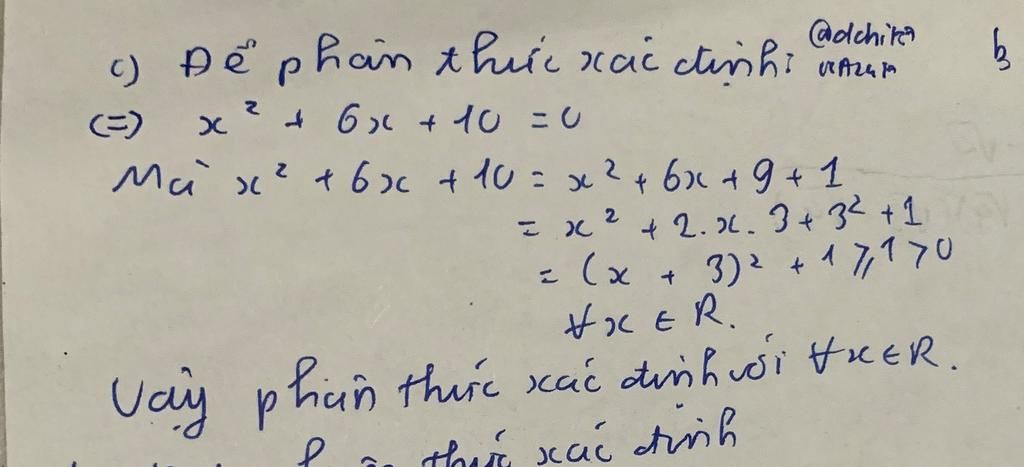 c) Để phân thức xác định: @dchira
b
(=) x² + 6x + 10 = 0
Mà x² + 6x + 10 = x² + 6x + 9 + 1
= x² + 2.x.3 + 3² + 1
= (x + 3)² + 1 ⩾ 1 > 0
∀x ∈ R.
Vậy phân thức xác định với ∀x∈R.
thức xác định